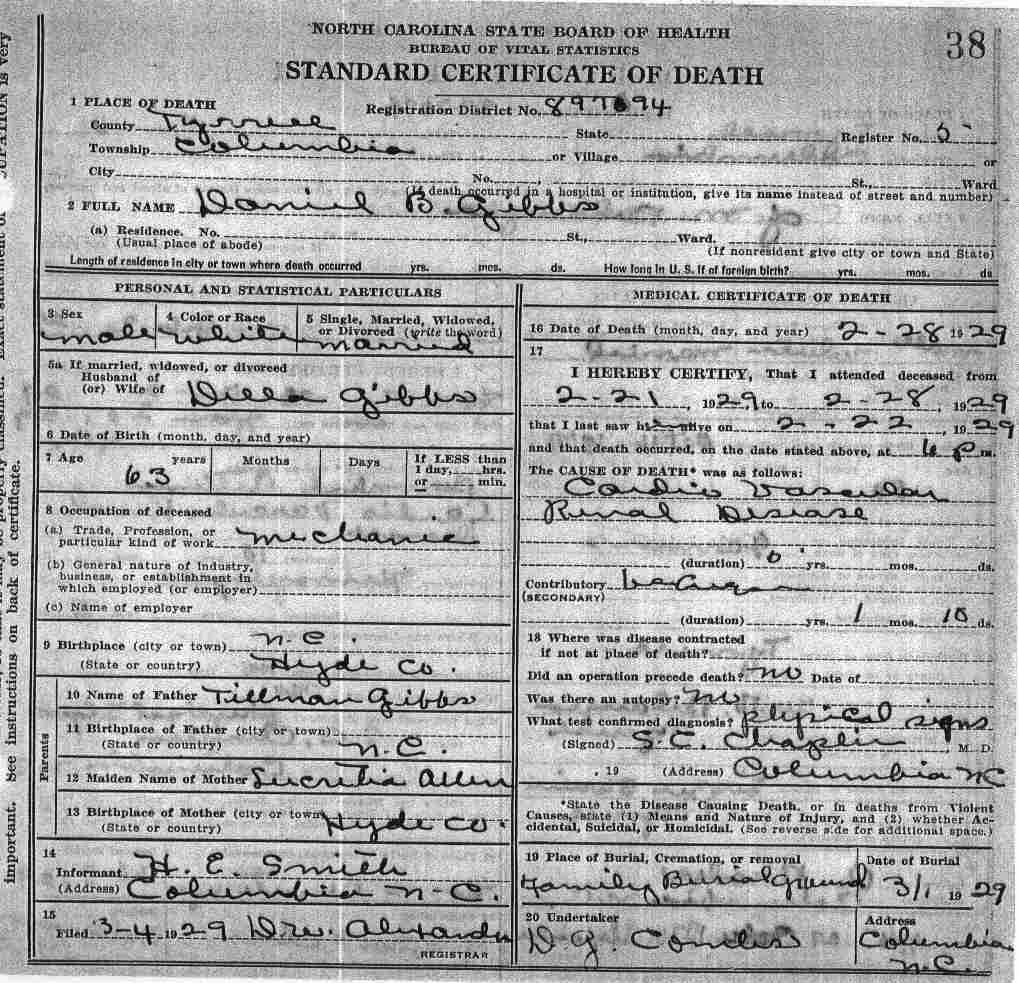 NORTH CAROLINA STATE BOARD OF HEALTH
BUREAU OF VITAL STATISTICS
38
STANDARD CERTIFICATE OF DEATH
1 PLACE OF DEATH
Registration District No. 897 94
County Tyrrell State Register No. 5
Township Columbia or Village or
City No. , St., Ward
(If death occurred in a hospital or institution, give its name instead of street and number)
2 FULL NAME Daniel B. Gibbs
(a) Residence. No. St., Ward.
(Usual place of abode) (If nonresident give city or town and State)
Length of residence in city or town where death occurred yrs. mos. ds. How long in U. S. if of foreign birth? yrs. mos. ds.
PERSONAL AND STATISTICAL PARTICULARS
3 Sex
male
4 Color or Race
white
5 Single, Married, Widowed,
or Divorced (write the word)
married
5a If married, widowed, or divorced
Husband of
(or) Wife of Della Gibbs
6 Date of Birth (month, day, and year)
7 Age years Months Days If LESS than
1 day, hrs.
or min.
63
8 Occupation of deceased
(a) Trade, Profession, or
particular kind of work mechanic
(b) General nature of industry,
business, or establishment in
which employed (or employer)
(c) Name of employer
9 Birthplace (city or town) N.C.
(State or country) Hyde Co.
Parents
10 Name of Father Tillman Gibbs
11 Birthplace of Father (city or town)
(State or country) N.C.
12 Maiden Name of Mother Lucretia Allen
13 Birthplace of Mother (city or town)
(State or country) Hyde Co.
14
Informant H. E. Smith
(Address) Columbia N.C.
15
Filed 3-4 1929
REGISTRAR
MEDICAL CERTIFICATE OF DEATH
16 Date of Death (month, day, and year) 2-28 1929
17
I HEREBY CERTIFY, That I attended deceased from
2-21, 1929 to 2-28, 1929
that I last saw h alive on 2-22, 1929
and that death occurred, on the date stated above, at p m.
The CAUSE OF DEATH* was as follows:
Cardio Vascular
Renal Disease
(duration) yrs. mos. ds.
Contributory
(SECONDARY)
(duration) yrs. 1 mos. 10 ds.
18 Where was disease contracted
if not at place of death?
Did an operation precede death? no Date of
Was there an autopsy? no
What test confirmed diagnosis? physical signs
(Signed) S. C. Chaplin M. D.
, 19 (Address) Columbia NC
*State the Disease Causing Death, or in deaths from Violent
Causes, state (1) Means and Nature of Injury, and (2) whether Ac-
cidental, Suicidal, or Homicidal. (See reverse side for additional space.)
19 Place of Burial, Cremation, or removal
Family Burial Ground
Date of Burial
3/1 1929
20 Undertaker
D. G.
Address
Columbia
N.C.
important. See instructions on back of certificate.